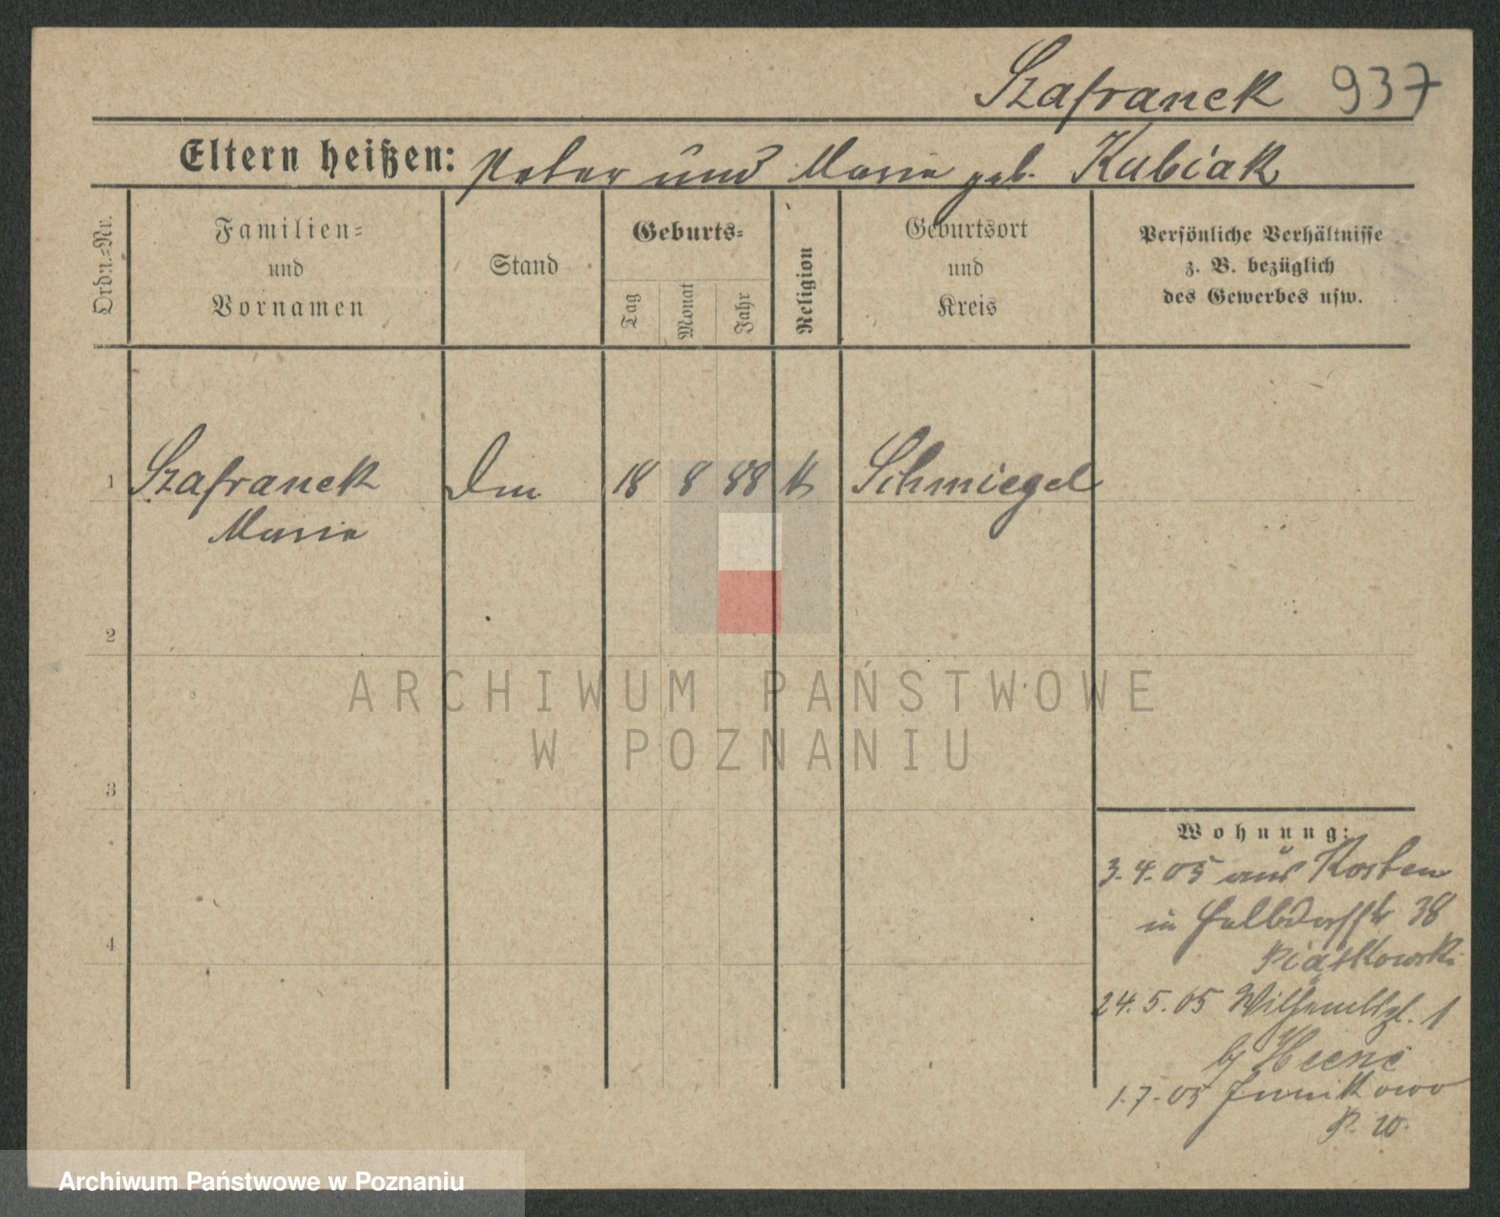 Szafranek 937
Eltern heißen: Peter und Marie geb. Kubiak
Ordn.=Nr.
Familien=
und
Vornamen
Stand
Geburts=
Tag
Monat
Jahr
Religion
Geburtsort
und
Kreis
Persönliche Verhältnisse
z. B. bezüglich
des Gewerbes usw.
1 Szafranek 18 8 88 k Schmiegel
Marie
2
ARCHIWUM PAŃSTWOWE
W POZNANIU
3
Wohnung:
3.4.05 aus Kosten
in 38
4
Piątkowski
24.5.05 Wilhelmstpl. 1
1.7.05 Junikowo
P. W.
Archiwum Państwowe w Poznaniu